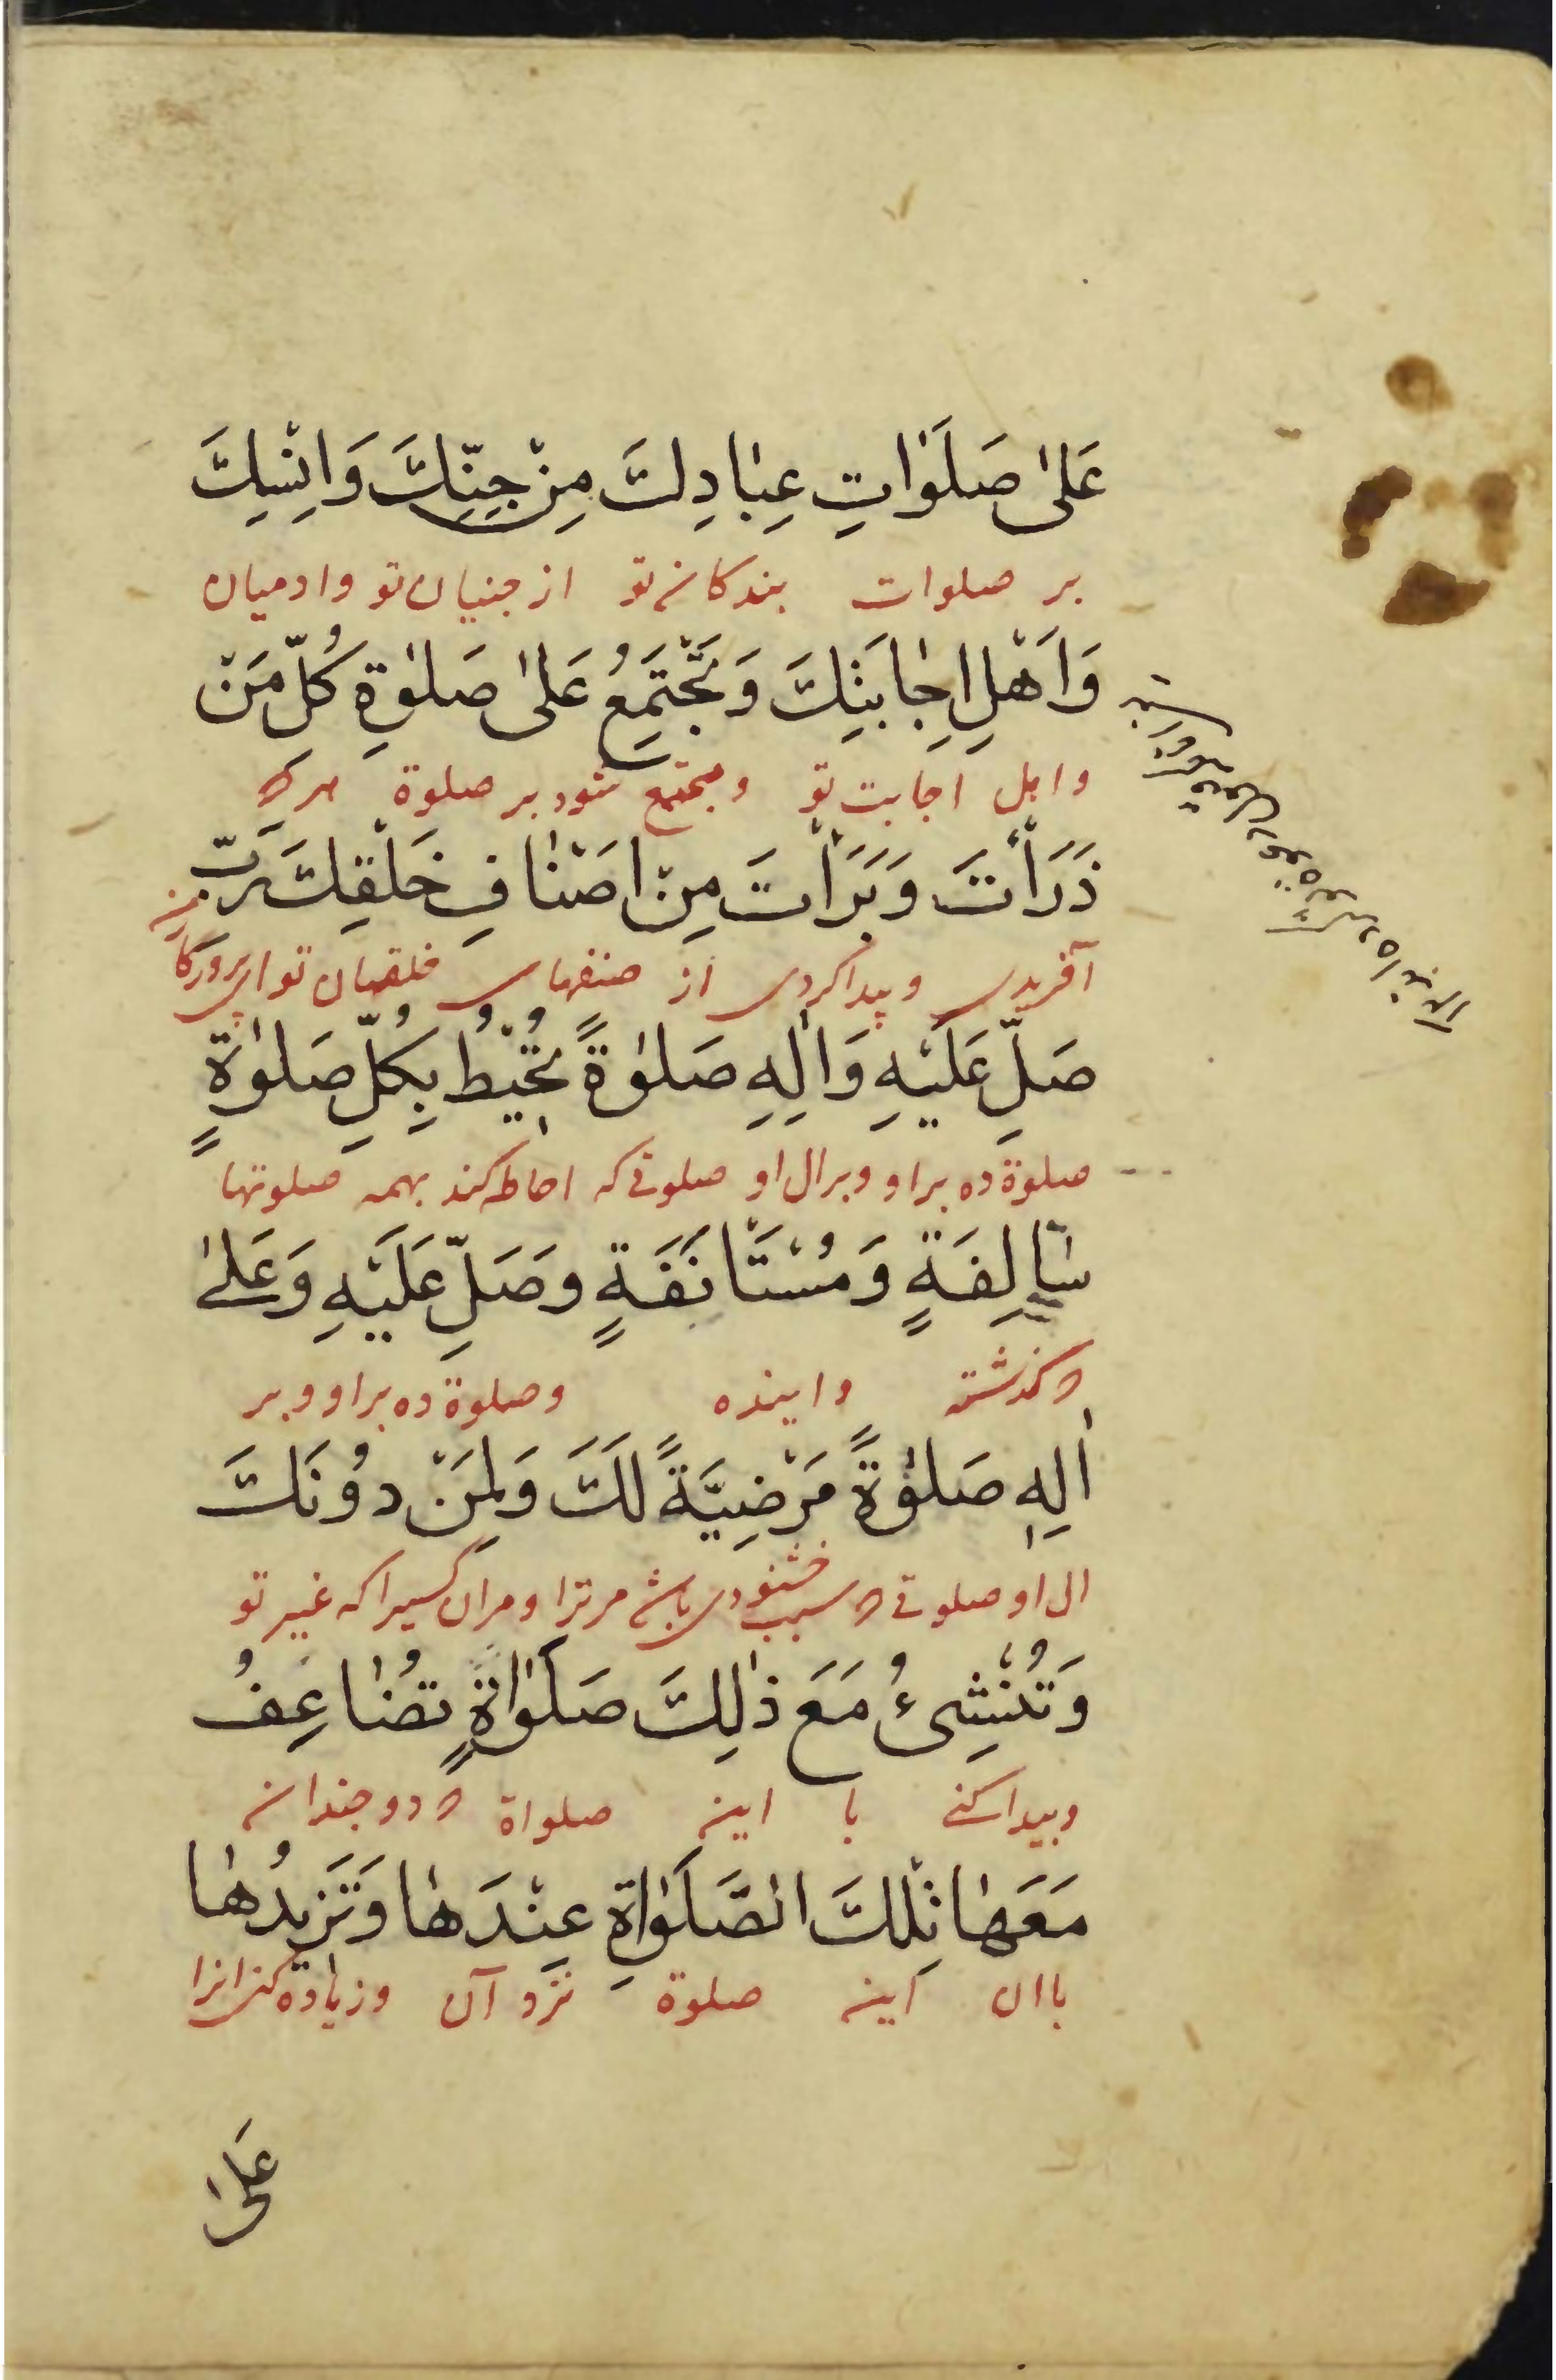 عَلىٰ صَلَوٰاتِ عِبٰادِكَ مِنْ جِنِّكَ وَاِنْسِكَ
بر صلوات بندکان تو از جنیان تو وادمیان
وَاَهْلِ اِجٰابَتِكَ وَتَجْتَمِعُ عَلىٰ صَلوٰةِ كُلِّ مَنْ
واهل اجابت تو ومجتمع شود بر صلوة هرکه
ذَرَأْتَ وَبَرَأْتَ مِنْ اَصْنٰافِ خَلْقِكَ رَبِّ
آفریدی وپیداکردی از صنفهای خلقهای تو ای پرورکار من
صَلِّ عَلَيْهِ وَاٰلِهِ صَلوٰةً تُحِيْطُ بِكُلِّ صَلوٰةٍ
صلوة ده براو وبرال او صلوتی که احاطه کند بهمه صلوتها
سٰالِفَةٍ وَمُسْتَأْنَفَةٍ وصَلِّ عَلَيْهِ وَعَلىٰ
که گذشته واینده وصلوة ده براو وبر
اٰلِهِ صَلوٰةً مَرْضِيَّةً لَكَ وَلِمَنْ دُونَكَ
ال او صلوتی که سبب خشنودی باشد مرترا ومران کسیرا که غیر تو
وَتُنْشِئُ مَعَ ذٰلِكَ صَلَوٰاةٍ تُضٰاعِفُ
وپیداکنی با این صلواة که دوچندان
مَعَهٰا تِلْكَ الصَّلَوٰاةِ عِنْدَهٰا وَتَزِيدُهٰا
باان این صلوة نزد آن وزیاده کنی انرا
عَلىٰ